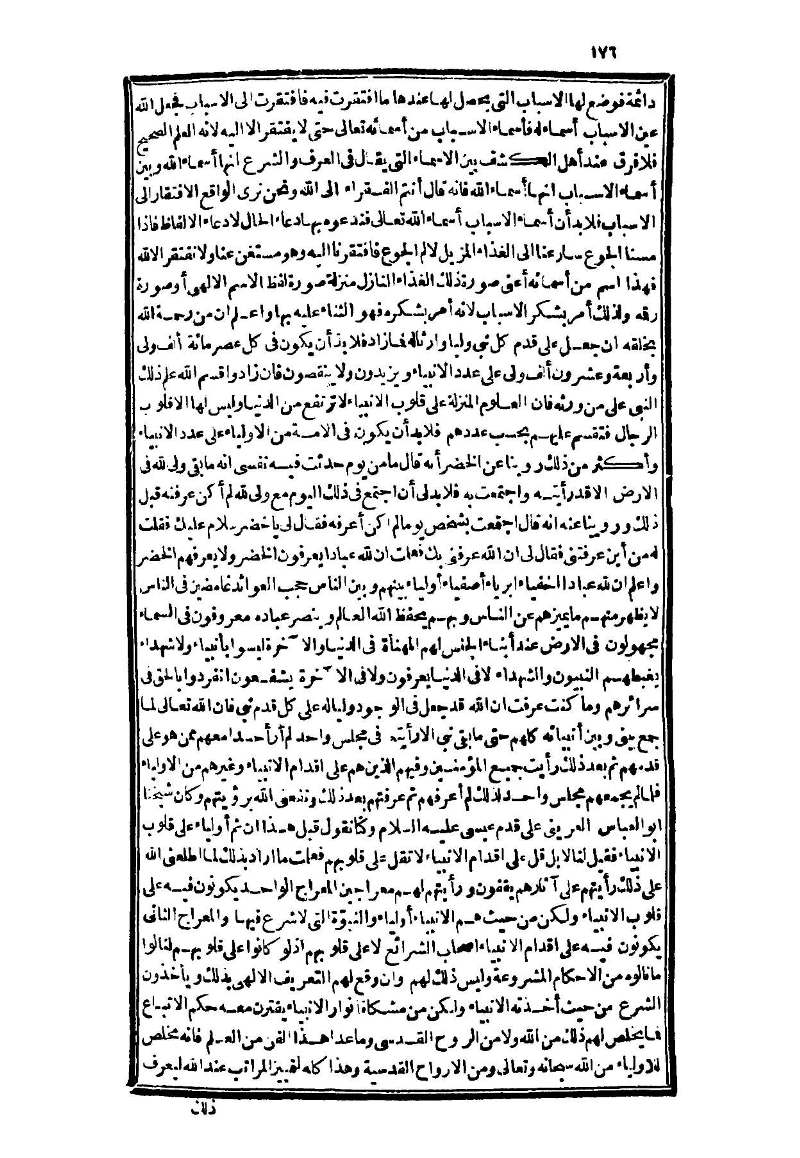 ١٧٦
دائمة فوضع لها الاسباب التي يحصل لها عندها ما افتقرت فيه فافتقرت الى الاسباب فجعل الله
عين الاسباب أسماء له فأسماء الاسباب من أسمائه تعالى حتى لا يفتقر الا اليه لانه العلم الصحيح
فلا فرق عند أهل الكشف بين الاسماء التي يقال في العرف والشرع انها أسماء الله وبين
أسماء الاسباب انها أسماء الله فانه قال أنتم الفقراء الى الله ونحن نرى الواقع الافتقار الى
الاسباب فلا بد أن أسماء الاسباب أسماء الله تعالى فندعوه بها دعاء الحال لا دعاء الالفاظ فاذا
مسنا الجوع سارعنا الى الغذاء المزيل لالم الجوع فافتقرنا اليه وهو مستغن عنا ولا نفتقر الا لله
فهذا اسم من أسمائه أعني صورة ذلك الغذاء النازل منزلة صورة لفظ الاسم الالهي أو صورة
رقه ولذلك أمر بشكر الاسباب لانه أمر بشكره فهو الثناء عليه بها واعلم ان من رحمة الله
بخلقه ان جعل على قدم كل نبي وليا وارثاله فما زاد فلا بد أن يكون في كل عصر مائة ألف ولي
وأربعة وعشرون ألف ولي على عدد الانبياء ويزيدون ولا ينقصون فان زادوا قسم الله علم ذلك
النبي على من ورثه فان العلوم المنزلة على قلوب الانبياء لا ترتفع من الدنيا وليس لها الا قلوب
الرجال فتقسم عليهم بحسب عددهم فلا بد أن يكون في الامة من الاولياء على عدد الانبياء
وأكثر من ذلك روينا عن الخضر أنه قال ما من يوم حدثت فيه نفسي انه ما بقي ولي لله في
الارض الا قد رأيته واجتمعت به فلا بد لي أن اجتمع في ذلك اليوم مع ولي لله لم أكن عرفته قبل
ذلك وروينا عنه انه قال اجتمعت بشخص يوما لم اكن أعرفه فقال لي يا خضر سلام عليك فقلت
له من أين عرفتني فقال لي ان الله عرفني بك فعلمت ان لله عبادا يعرفون الخضر ولا يعرفهم الخضر
واعلم ان لله عبادا اخفياء ابرياء أصفياء أولياء بينهم وبين الناس حجب العوائد غامضين في الناس
لا يظهر منهم ما يميزهم عن الناس وبهم يحفظ الله العالم وينصر عباده معروفون في السماء
مجهولون في الارض عند أبناء الجنس لهم المهنأة في الدنيا والآخرة ليسوا بأنبياء ولا شهداء
يغبطهم النبيون والشهداء لا في الدنيا يعرفون ولا في الآخرة يشفعون انفردوا بالحق في
سرائرهم وما كنت عرفت ان الله قد جعل في الوجود وليا له على كل قدم نبي فان الله تعالى لما
جمع بيني وبين أنبيائه كلهم حتى ما بقي نبي الا رأيته في مجلس واحد لم أر أحدا معهم ممن هو على
قدمهم ثم بعد ذلك رأيت جميع المؤمنين وفيهم الذين هم على اقدام الانبياء وغيرهم من الاولياء
فلما لم يجمعهم مجلس واحد لذلك لم أعرفهم ثم عرفتهم بعد ذلك ونفعني الله برؤيتهم وكان شيخنا
ابو العباس العريني على قدم عيسى عليه السلام وكنا نقول قبل هذا ان ثم أولياء على قلوب
الانبياء فقيل لنا لا بل قل على اقدام الانبياء لا تقل على قلوبهم فعلمت ما اراد بذلك لما اطلعني الله
على ذلك رأيتهم على آثارهم يقفون ورأيتهم لهم معراجين المعراج الواحد يكونون فيه على
قلوب الانبياء ولكن من حيث هم الانبياء أولياء والنبوة التي لا شرع فيها والمعراج الثاني
يكونون فيه على اقدام الانبياء اصحاب الشرائع لا على قلوبهم اذ لو كانوا على قلوبهم لنالوا
ما نالوه من الاحكام المشروعة وليس ذلك لهم وان وقع لهم التعريف الالهي بذلك ويأخذون
الشرع من حيث أخذته الانبياء ولكن من مشكاة انوار الانبياء يقترن معه حكم الاتباع
فما يخلص لهم ذلك من الله ولا من الروح القدسي وما عدا هذا الفن من العلم فانه مخلص
للاولياء من الله سبحانه وتعالى ومن الارواح القدسية وهذا كله لتمييز المراتب عند الله ليعرف
ذلك